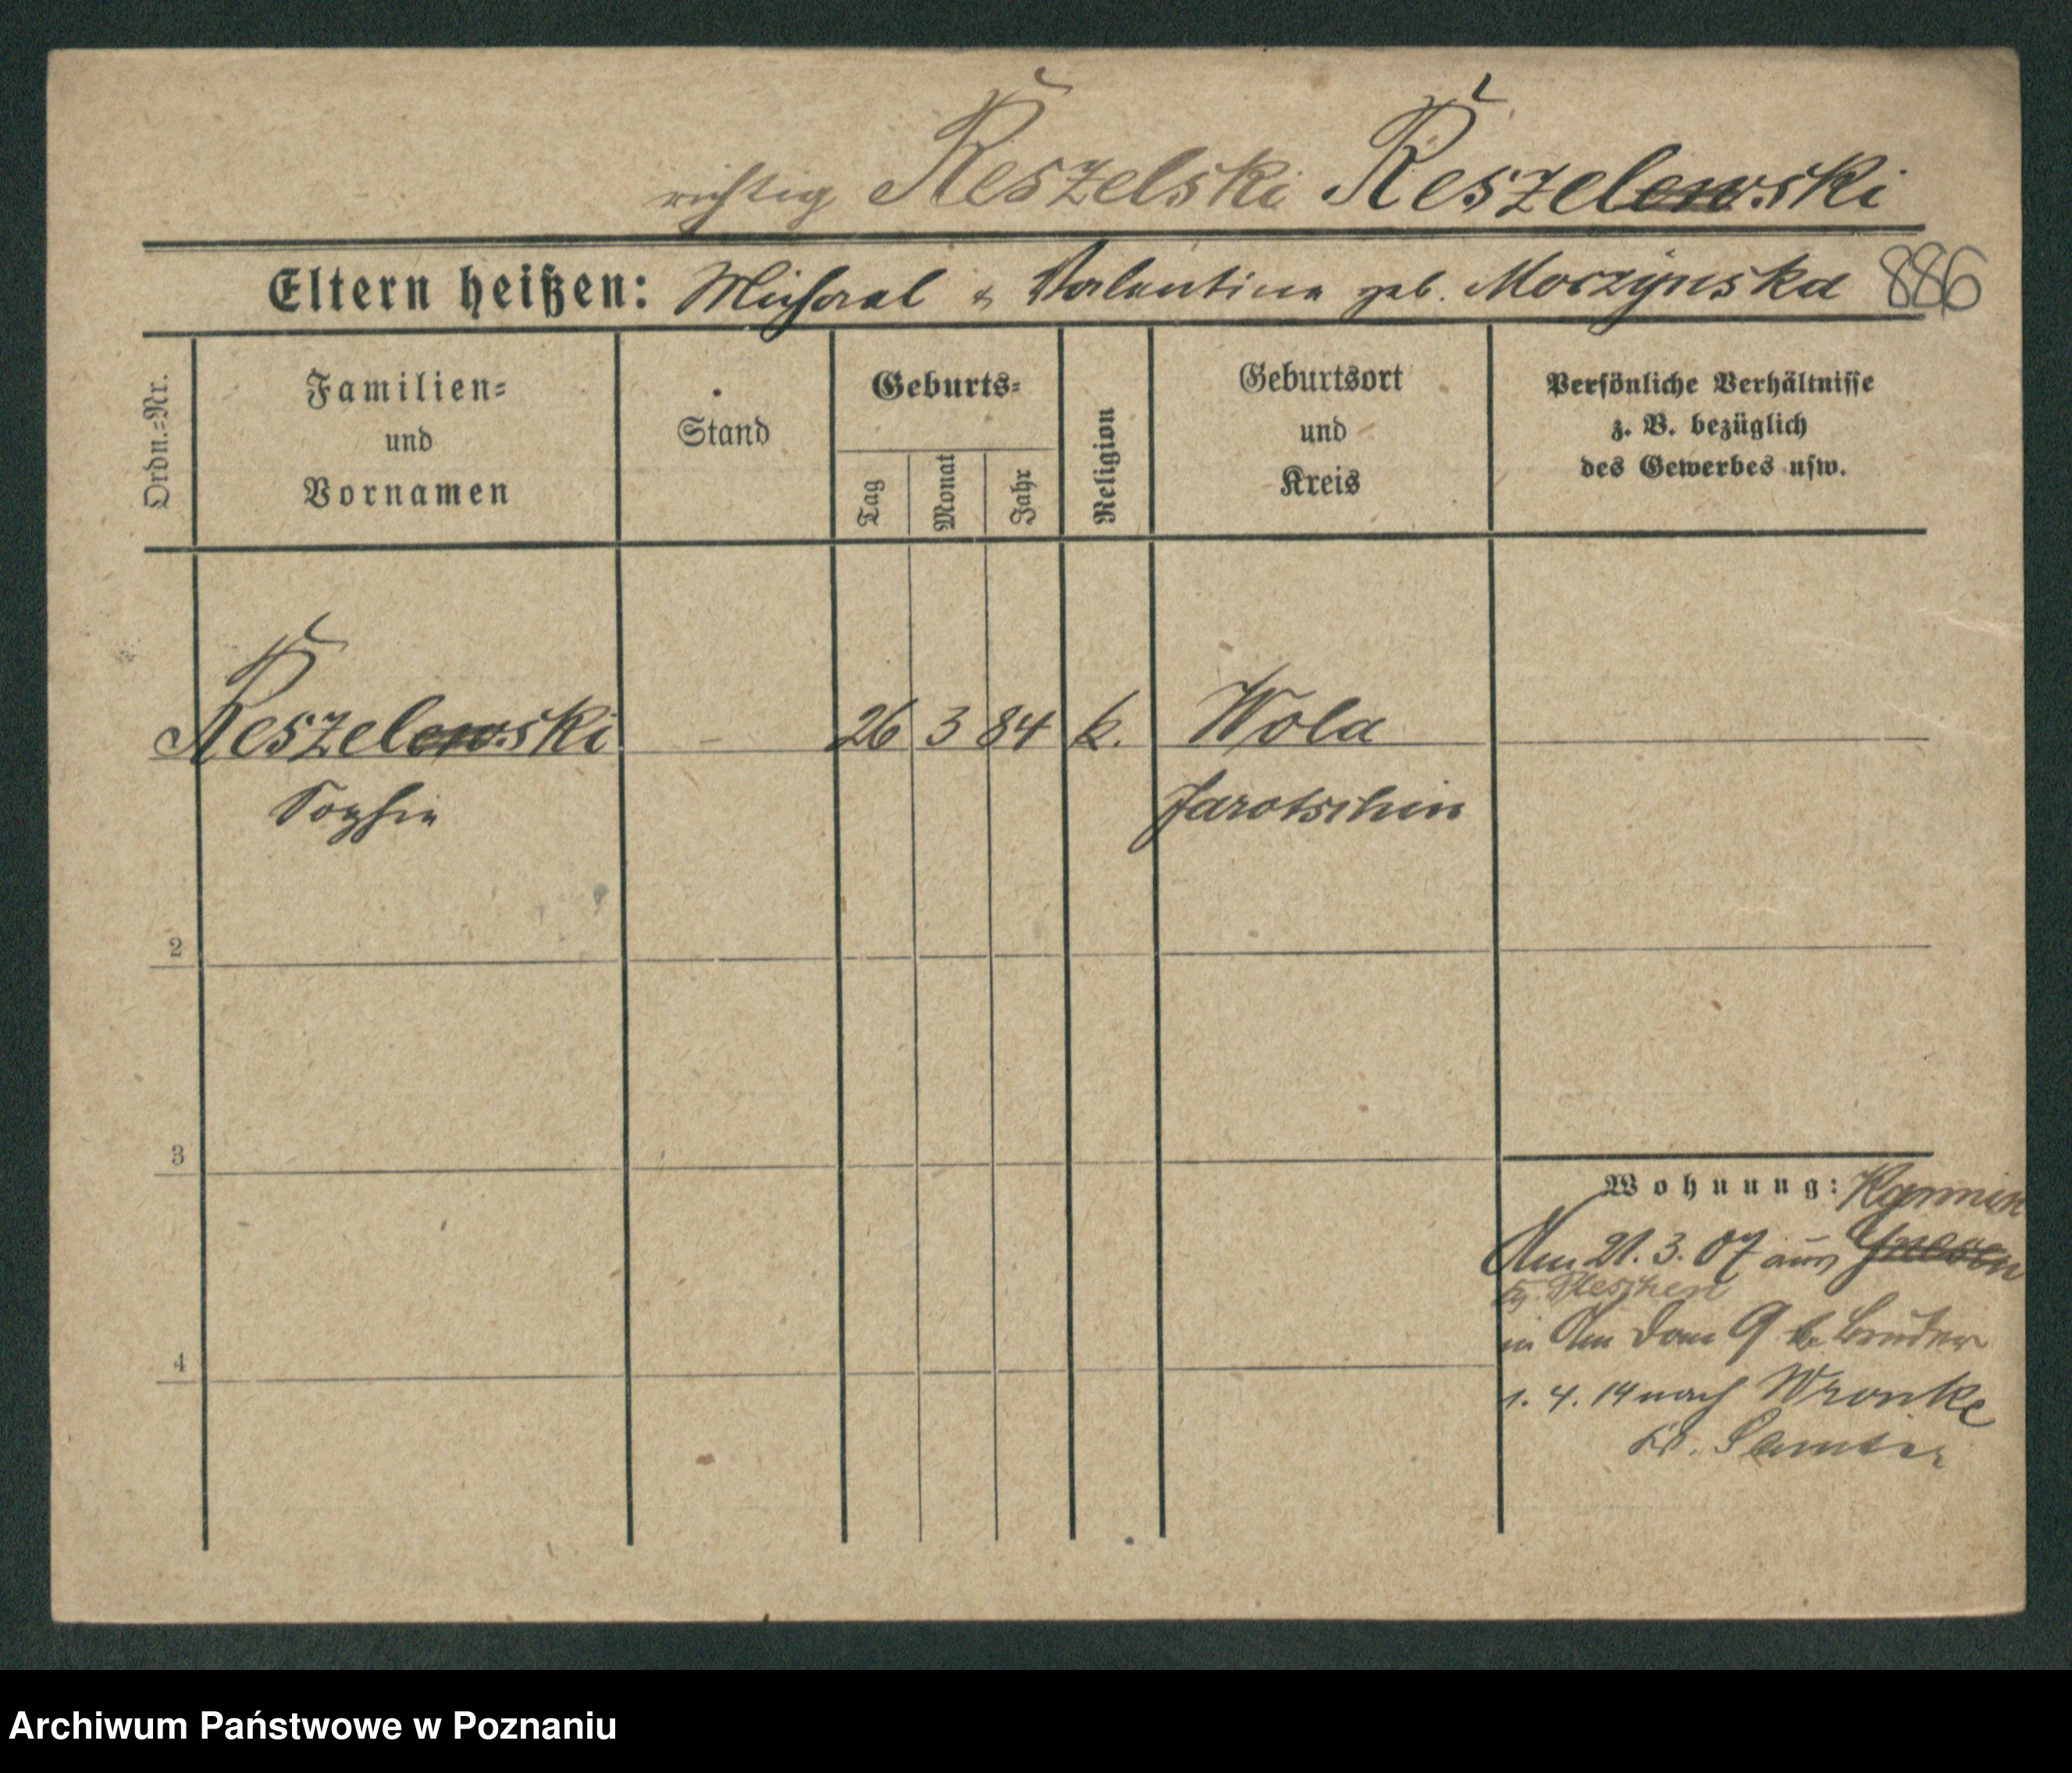 richtig Reszelski Reszelewski
Eltern heißen: Michael & Valentina geb. Moczynska 886
Ordn.-Nr.
Familien-
und
Vornamen
Stand
Geburts-
Tag
Monat
Jahr
Religion
Geburtsort
und
Kreis
Persönliche Verhältnisse
z. B. bezüglich
des Gewerbes usw.
Reszelewski 26 3 84 k. Wola
Sophie Jarotschin
2
3
Wohnung:
21. 3. 07 aus Gnesen
Pleschen
in Dom 9 b. Bruder
4
1. 4. 14 nach Wronke
Kr. Samter
Archiwum Państwowe w Poznaniu